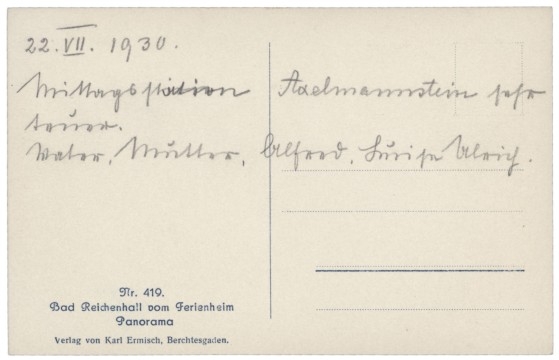 22. VII. 1930.
Mittagsstation Axelmannstein sehr
teuer.
Vater, Mutter, Alfred, Luise Ulrich.
Nr. 419.
Bad Reichenhall vom Ferienheim
Panorama
Verlag von Karl Ermisch, Berchtesgaden.